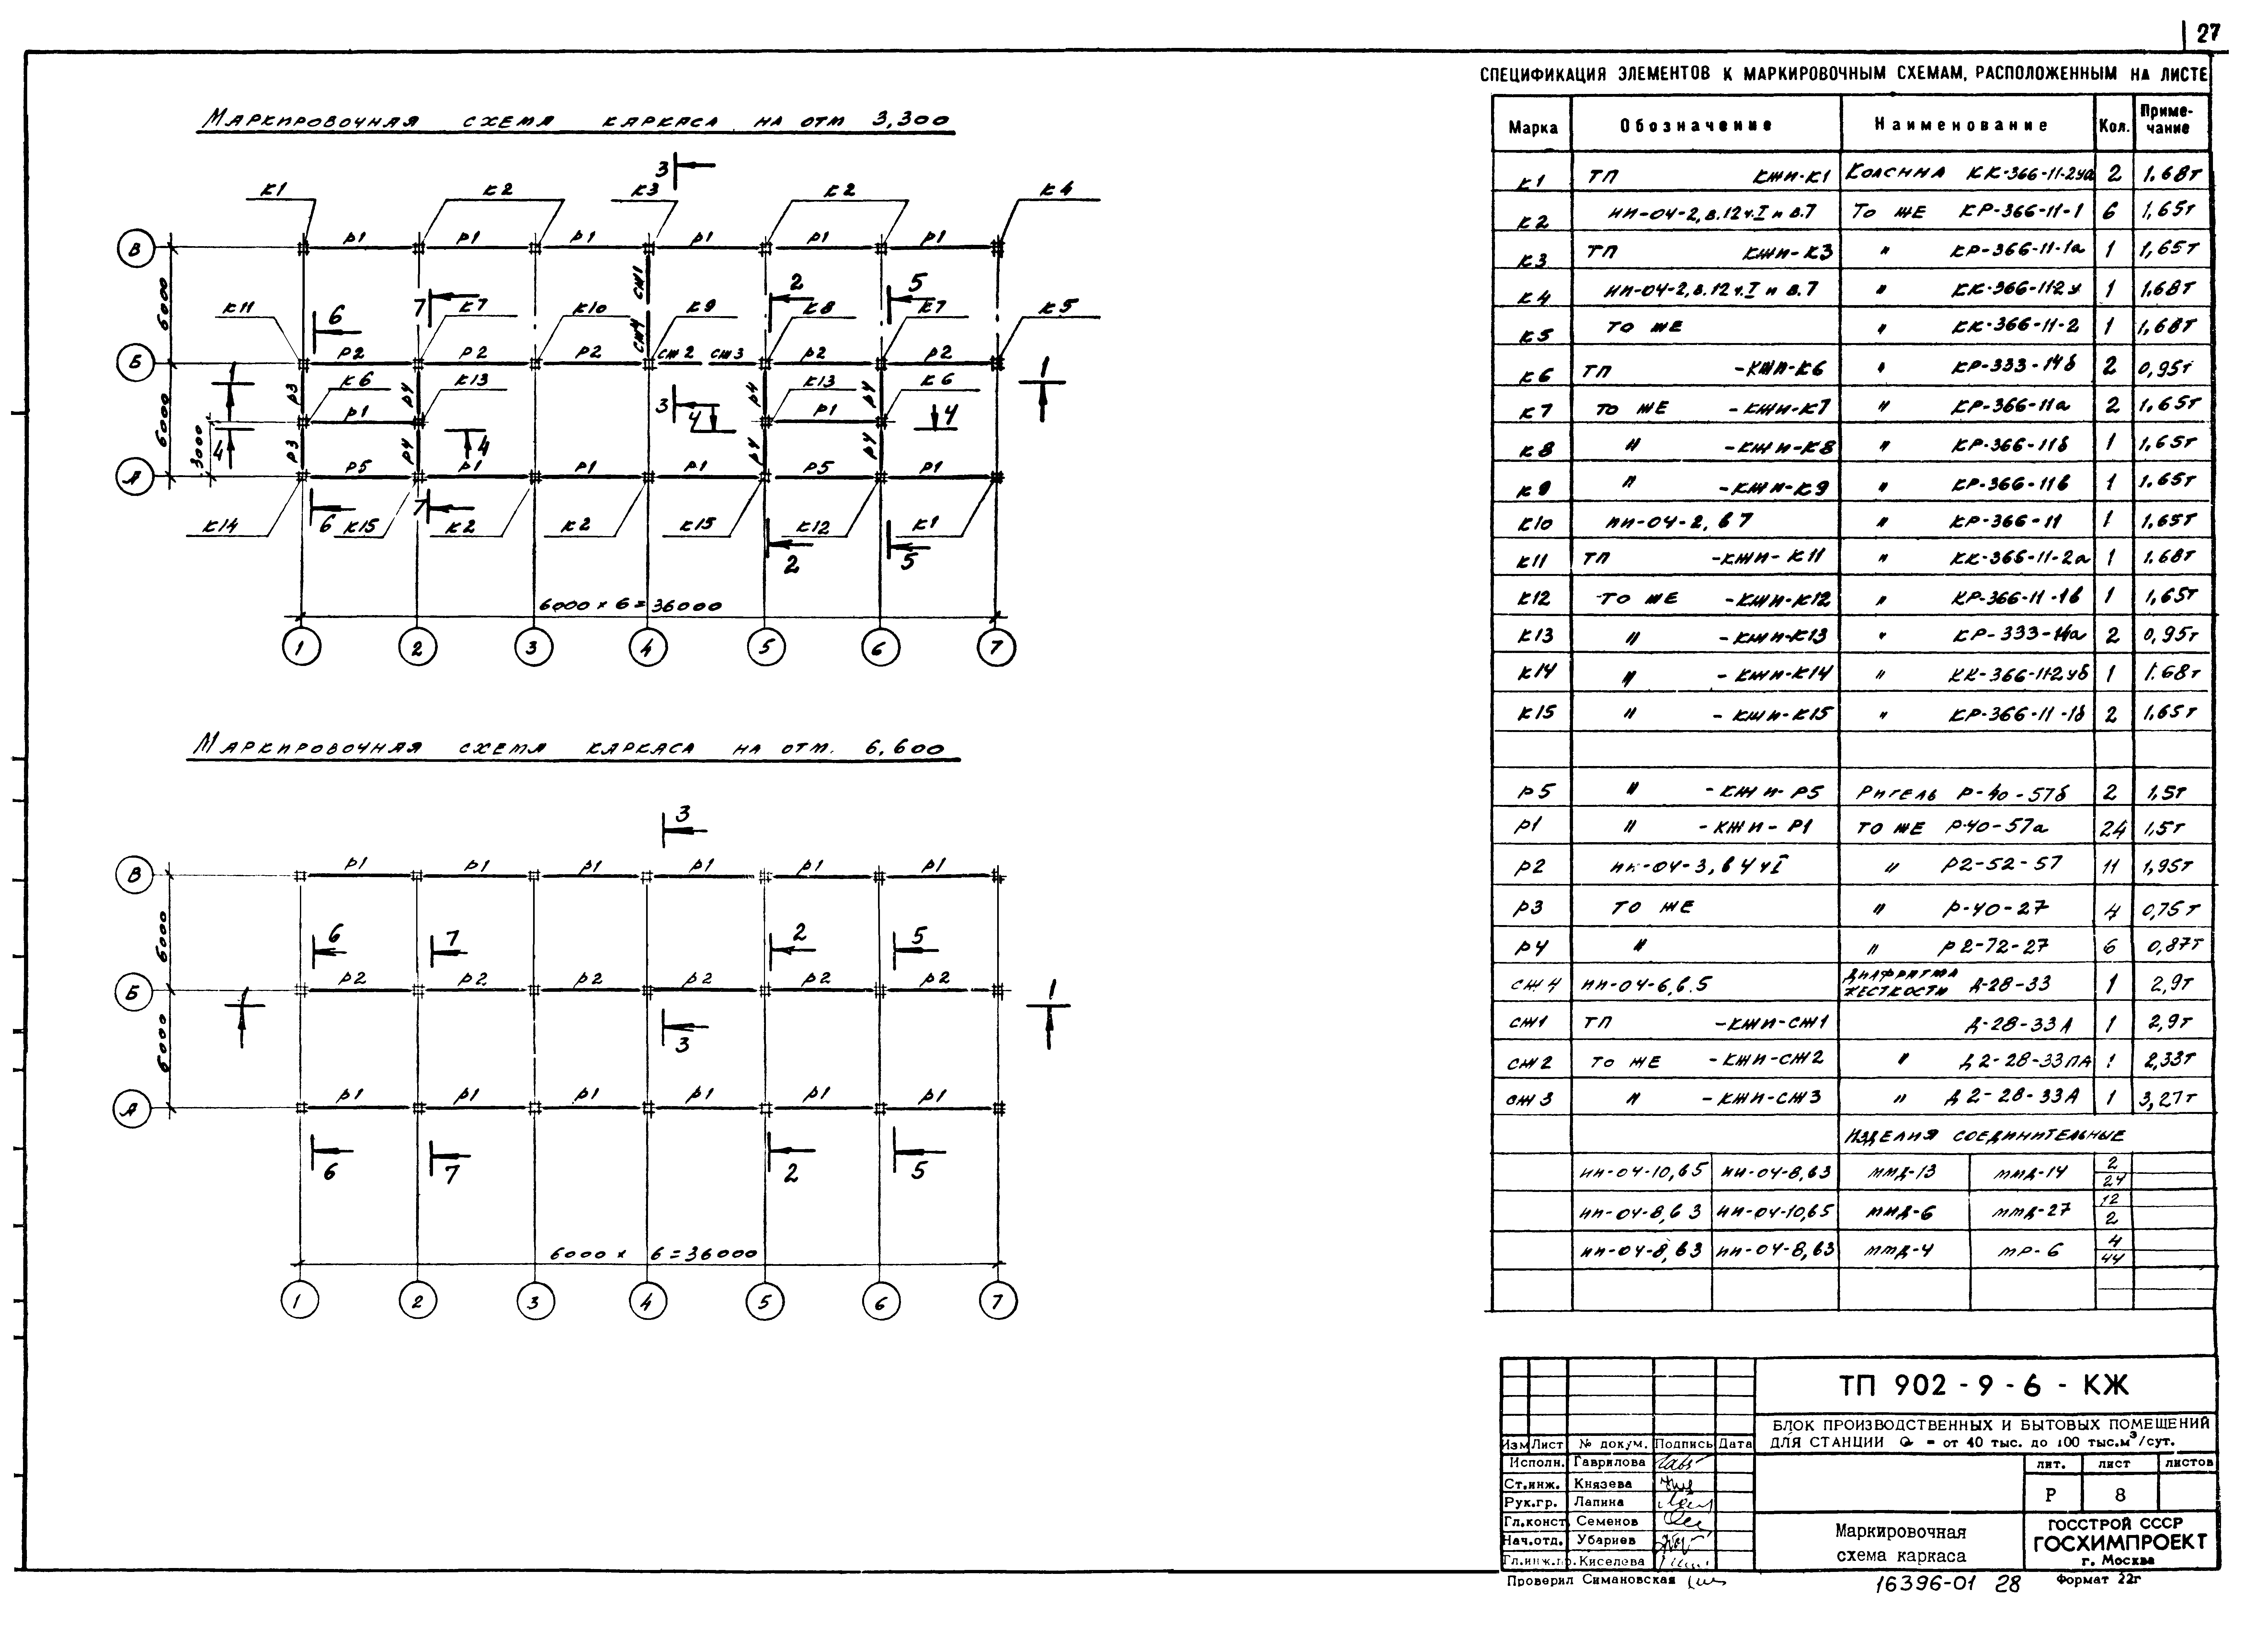 27
СПЕЦИФИКАЦИЯ ЭЛЕМЕНТОВ К МАРКИРОВОЧНЫМ СХЕМАМ, РАСПОЛОЖЕННЫМ НА ЛИСТЕ
Маркировочная схема каркаса на отм 3,300
К1 К2 К3 3 К2 К4
В Р1 Р1 Р1 Р1 Р1 Р1
6000 СЖ1 СЖ4
К11 6 7 К7 К10 К9 2 К8 5 К7 К5
Б Р2 Р2 Р2 СЖ2 СЖ3 Р2 Р2
1 Р3 К6 Р4 К13 Р4 К13 Р4 К6 1
6000 3000 4 Р1 4 3 4 Р1 4
Р3 Р4 Р4 Р4
А Р5 Р1 Р1 Р1 Р5 Р1
К14 6 К15 7 К2 К2 К15 2 К12 К1 5
6000 × 6 = 36000
1 2 3 4 5 6 7
Маркировочная схема каркаса на отм. 6,600
3
В Р1 Р1 Р1 Р1 Р1 Р1
6000 6 7 2 5
Б Р2 Р2 Р2 Р2 Р2 Р2
1 3 1
6000
А Р1 Р1 Р1 Р1 Р1 Р1
6 7 2 5
6000 × 6 = 36000
1 2 3 4 5 6 7
Марка Обозначение Наименование Кол. Приме-
чание
К1 ТП КЖИ-К1 Колонна КК-366-11-2уа 2 1.68т
К2 ИИ-04-2, в.12 ч.I и в.7 То же КР-366-11-1 6 1,65т
К3 ТП КЖИ-К3 " КР-366-11-1а 1 1,65т
К4 ИИ-04-2, в.12 ч.I и в.7 " КК-366-11-2у 1 1.68т
К5 То же " КК-366-11-2 1 1,68т
К6 ТП -КЖИ-К6 " КР-333-14б 2 0,95т
К7 То же -КЖИ-К7 " КР-366-11а 2 1,65т
К8 " -КЖИ-К8 " КР-366-11б 1 1,65т
К9 " -КЖИ-К9 " КР-366-11в 1 1.65т
К10 ИИ-04-2, в 7 " КР-366-11 1 1,65т
К11 ТП -КЖИ-К11 " КК-366-11-2а 1 1.68т
К12 То же -КЖИ-К12 " КР-366-11-1в 1 1,65т
К13 " -КЖИ-К13 " КР-333-14а 2 0,95т
К14 " -КЖИ-К14 " КК-366-11-2уб 1 1.68т
К15 " -КЖИ-К15 " КР-366-11-1б 2 1,65т
Р5 " -КЖИ-Р5 Ригель Р-40-57б 2 1,5т
Р1 " -КЖИ-Р1 То же Р-40-57а 24 1,5т
Р2 ИИ-04-3, в 4 ч I " Р2-52-57 11 1,95т
Р3 То же " Р-40-27 4 0,75т
Р4 " " Р2-72-27 6 0,87т
СЖ4 ИИ-04-6, в.5 Диафрагма
жесткости Д-28-33 1 2,9т
СЖ1 ТП -КЖИ-СЖ1 Д-28-33А 1 2,9т
СЖ2 То же -КЖИ-СЖ2 " Д2-28-33ПА 1 2,33т
СЖ3 " -КЖИ-СЖ3 " Д2-28-33А 1 3,27т
Изделия соединительные
ИИ-04-10, в5 ИИ-04-8, в3 ММД-13 ММД-14 2 24
ИИ-04-8, в 3 ИИ-04-10, в5 ММД-6 ММД-27 12 2
ИИ-04-8, в3 ИИ-04-8, в3 ММД-4 МР-6 4 44
ТП 902 - 9 - 6 - КЖ
БЛОК ПРОИЗВОДСТВЕННЫХ И БЫТОВЫХ ПОМЕЩЕНИЙ
ДЛЯ СТАНЦИИ Q = от 40 тыс. до 100 тыс.м³/сут.
Изм Лист № докум. Подпись Дата
Исполн. Гаврилова
Ст.инж. Князева
Рук.гр. Лапина
Гл.конст Семенов
Нач.отд. Убариев
Гл.инж.пр. Киселева
Проверил Симановская
лит. лист листов
Р 8
Маркировочная
схема каркаса
ГОССТРОЙ СССР
ГОСХИМПРОЕКТ
г. Москва
16396-01 28
Формат 22г